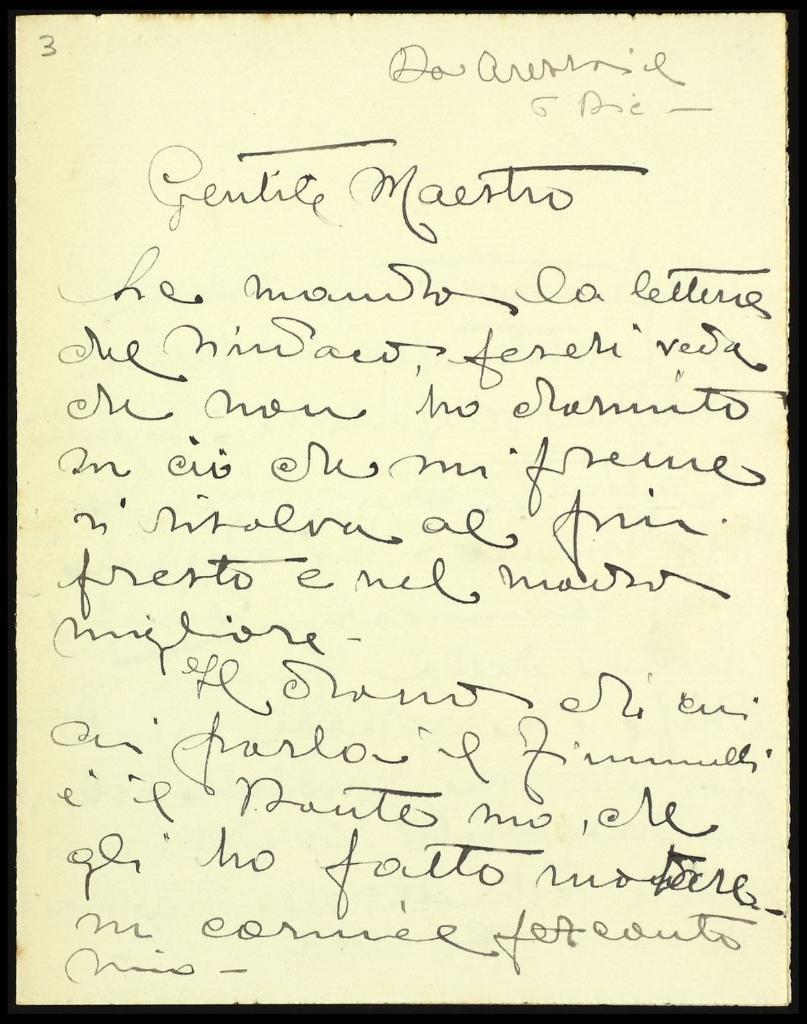 3
Da Arezzo il
5 Dic -
Gentile Maestro
Le mando la lettera
del Sindaco, perché veda
che non ho dormito
in ciò che mi preme
si risolva al più
presto e nel modo
migliore -
Il dono di cui
ci parla il
è il Dante mo, che
gli ho fatto mettere
in cornice per conto
mio -